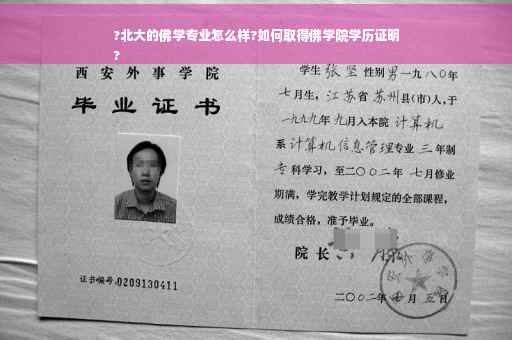 ?北大的佛学专业怎么样?如何取得佛学院学历证明
?
西安外事学院
毕业证书
证书编号:0209130411
学生张坚性别男一九八〇年
七月生,江苏省苏州县(市)人,于
一九九九年九月入本院计算机
系计算机信息管理专业三年制
专科学习,至二〇〇二年七月修业
期满,学完教学计划规定的全部课程,
成绩合格,准予毕业。
院长
二〇〇二年七月五日